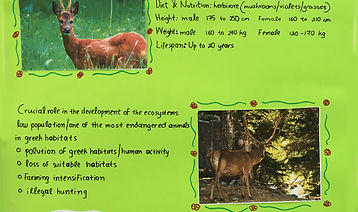 Diet & Nutrition: herbivore (mushrooms/violets/grasses)
Height: male 175 to 250 cm Female 160 to 210 cm
Weight: male 160 to 240 kg Female 120-170 kg
Lifespan: Up to 20 years
Crucial role in the development of the ecosystems
low population/one of the most endangered animals
in greek habitats
pollution of greek habitats/human activity
loss of suitable habitats
Farming intensification
illegal hunting